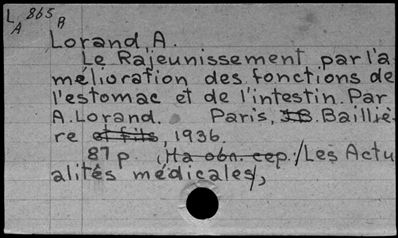 L 865 B
A
Lorand A.
Le Rajeunissement par l'a
mélioration des fonctions de
l'estomac et de l'intestin. Par
A. Lorand. Paris, J.B. Bailliè-
re et fils, 1936.
87 p. (На обл. сер.: Les Actu
alités médicales),